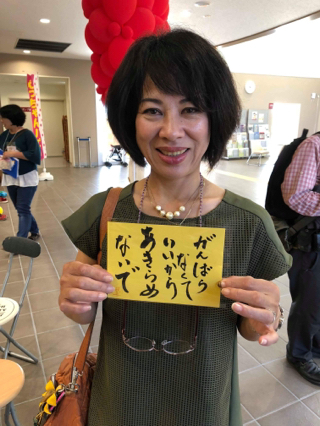 がんばら
なくて
いいから
あきらめ
ないで